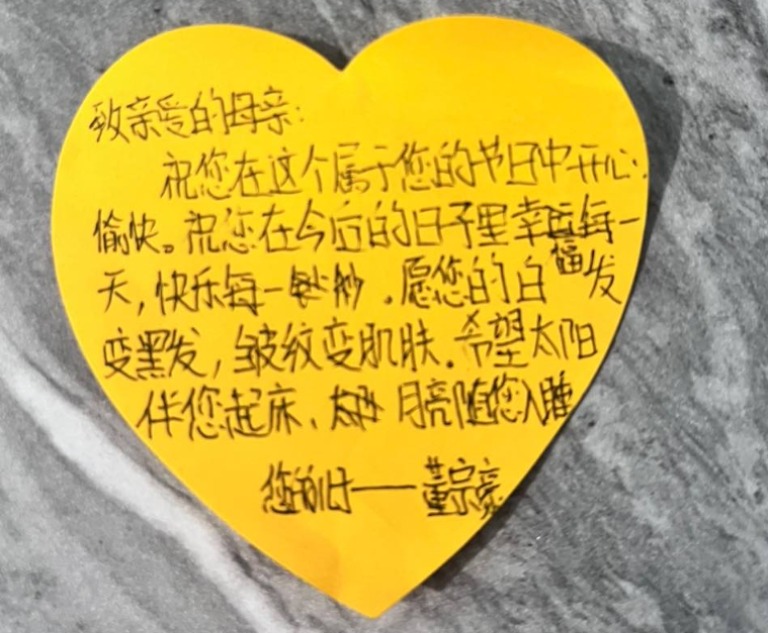 致亲爱的母亲:
祝您在这个属于您的节日中开心.
愉快。祝您在今后的日子里幸福每一
天,快乐每一秒。愿您的白发
变黑发,皱纹变肌肤.希望太阳
伴您起床、月亮随您入睡
您的——董宗豪